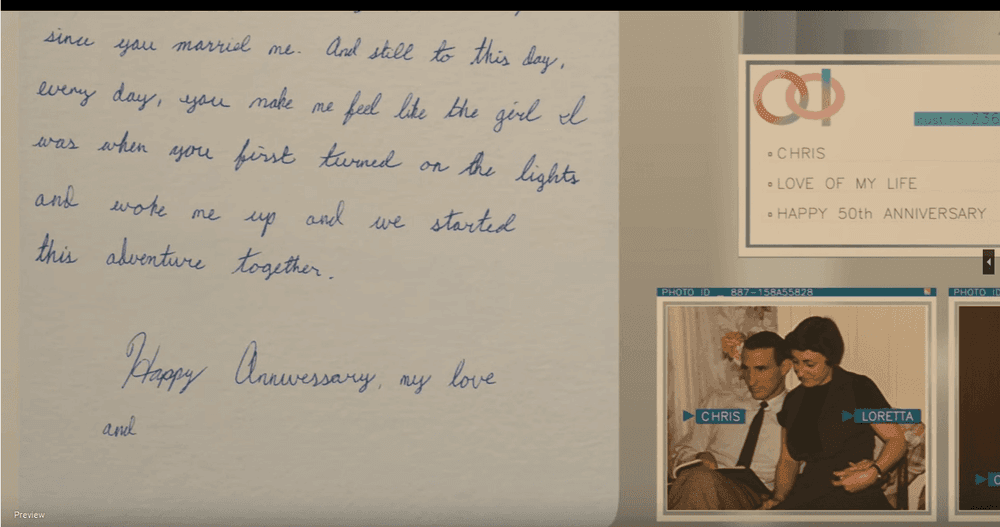 since you married me. And still to this day,
every day, you make me feel like the girl I
was when you first turned on the lights
and woke me up and we started
this adventure together.
Happy Anniverssary, my love
and
cust no. 236
CHRIS
LOVE OF MY LIFE
HAPPY 50th ANNIVERSARY
PHOTO ID _ 887-158A55828
PHOTO ID
CHRIS
LORETTA
Preview